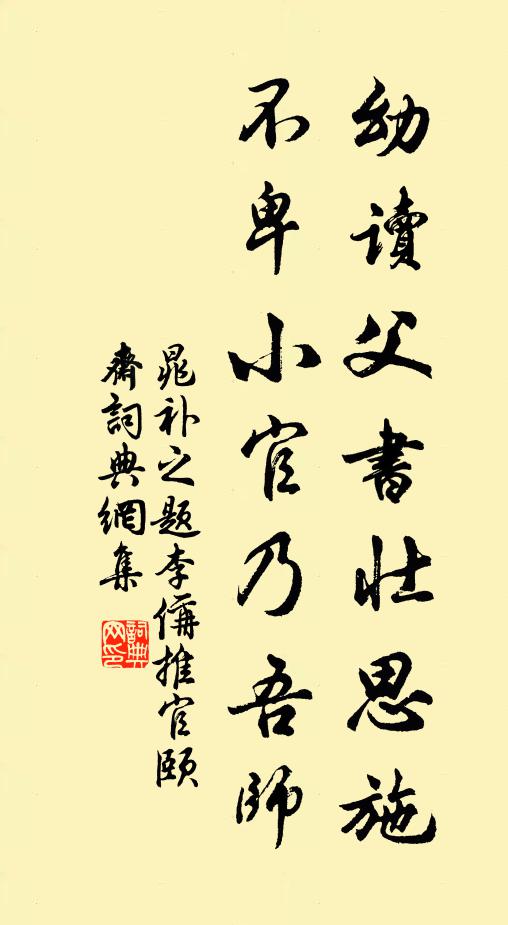 幼讀父書壯思施
不卑小官乃吾師
晁补之题李備推官颐
齋詞典網集
詞典
网印